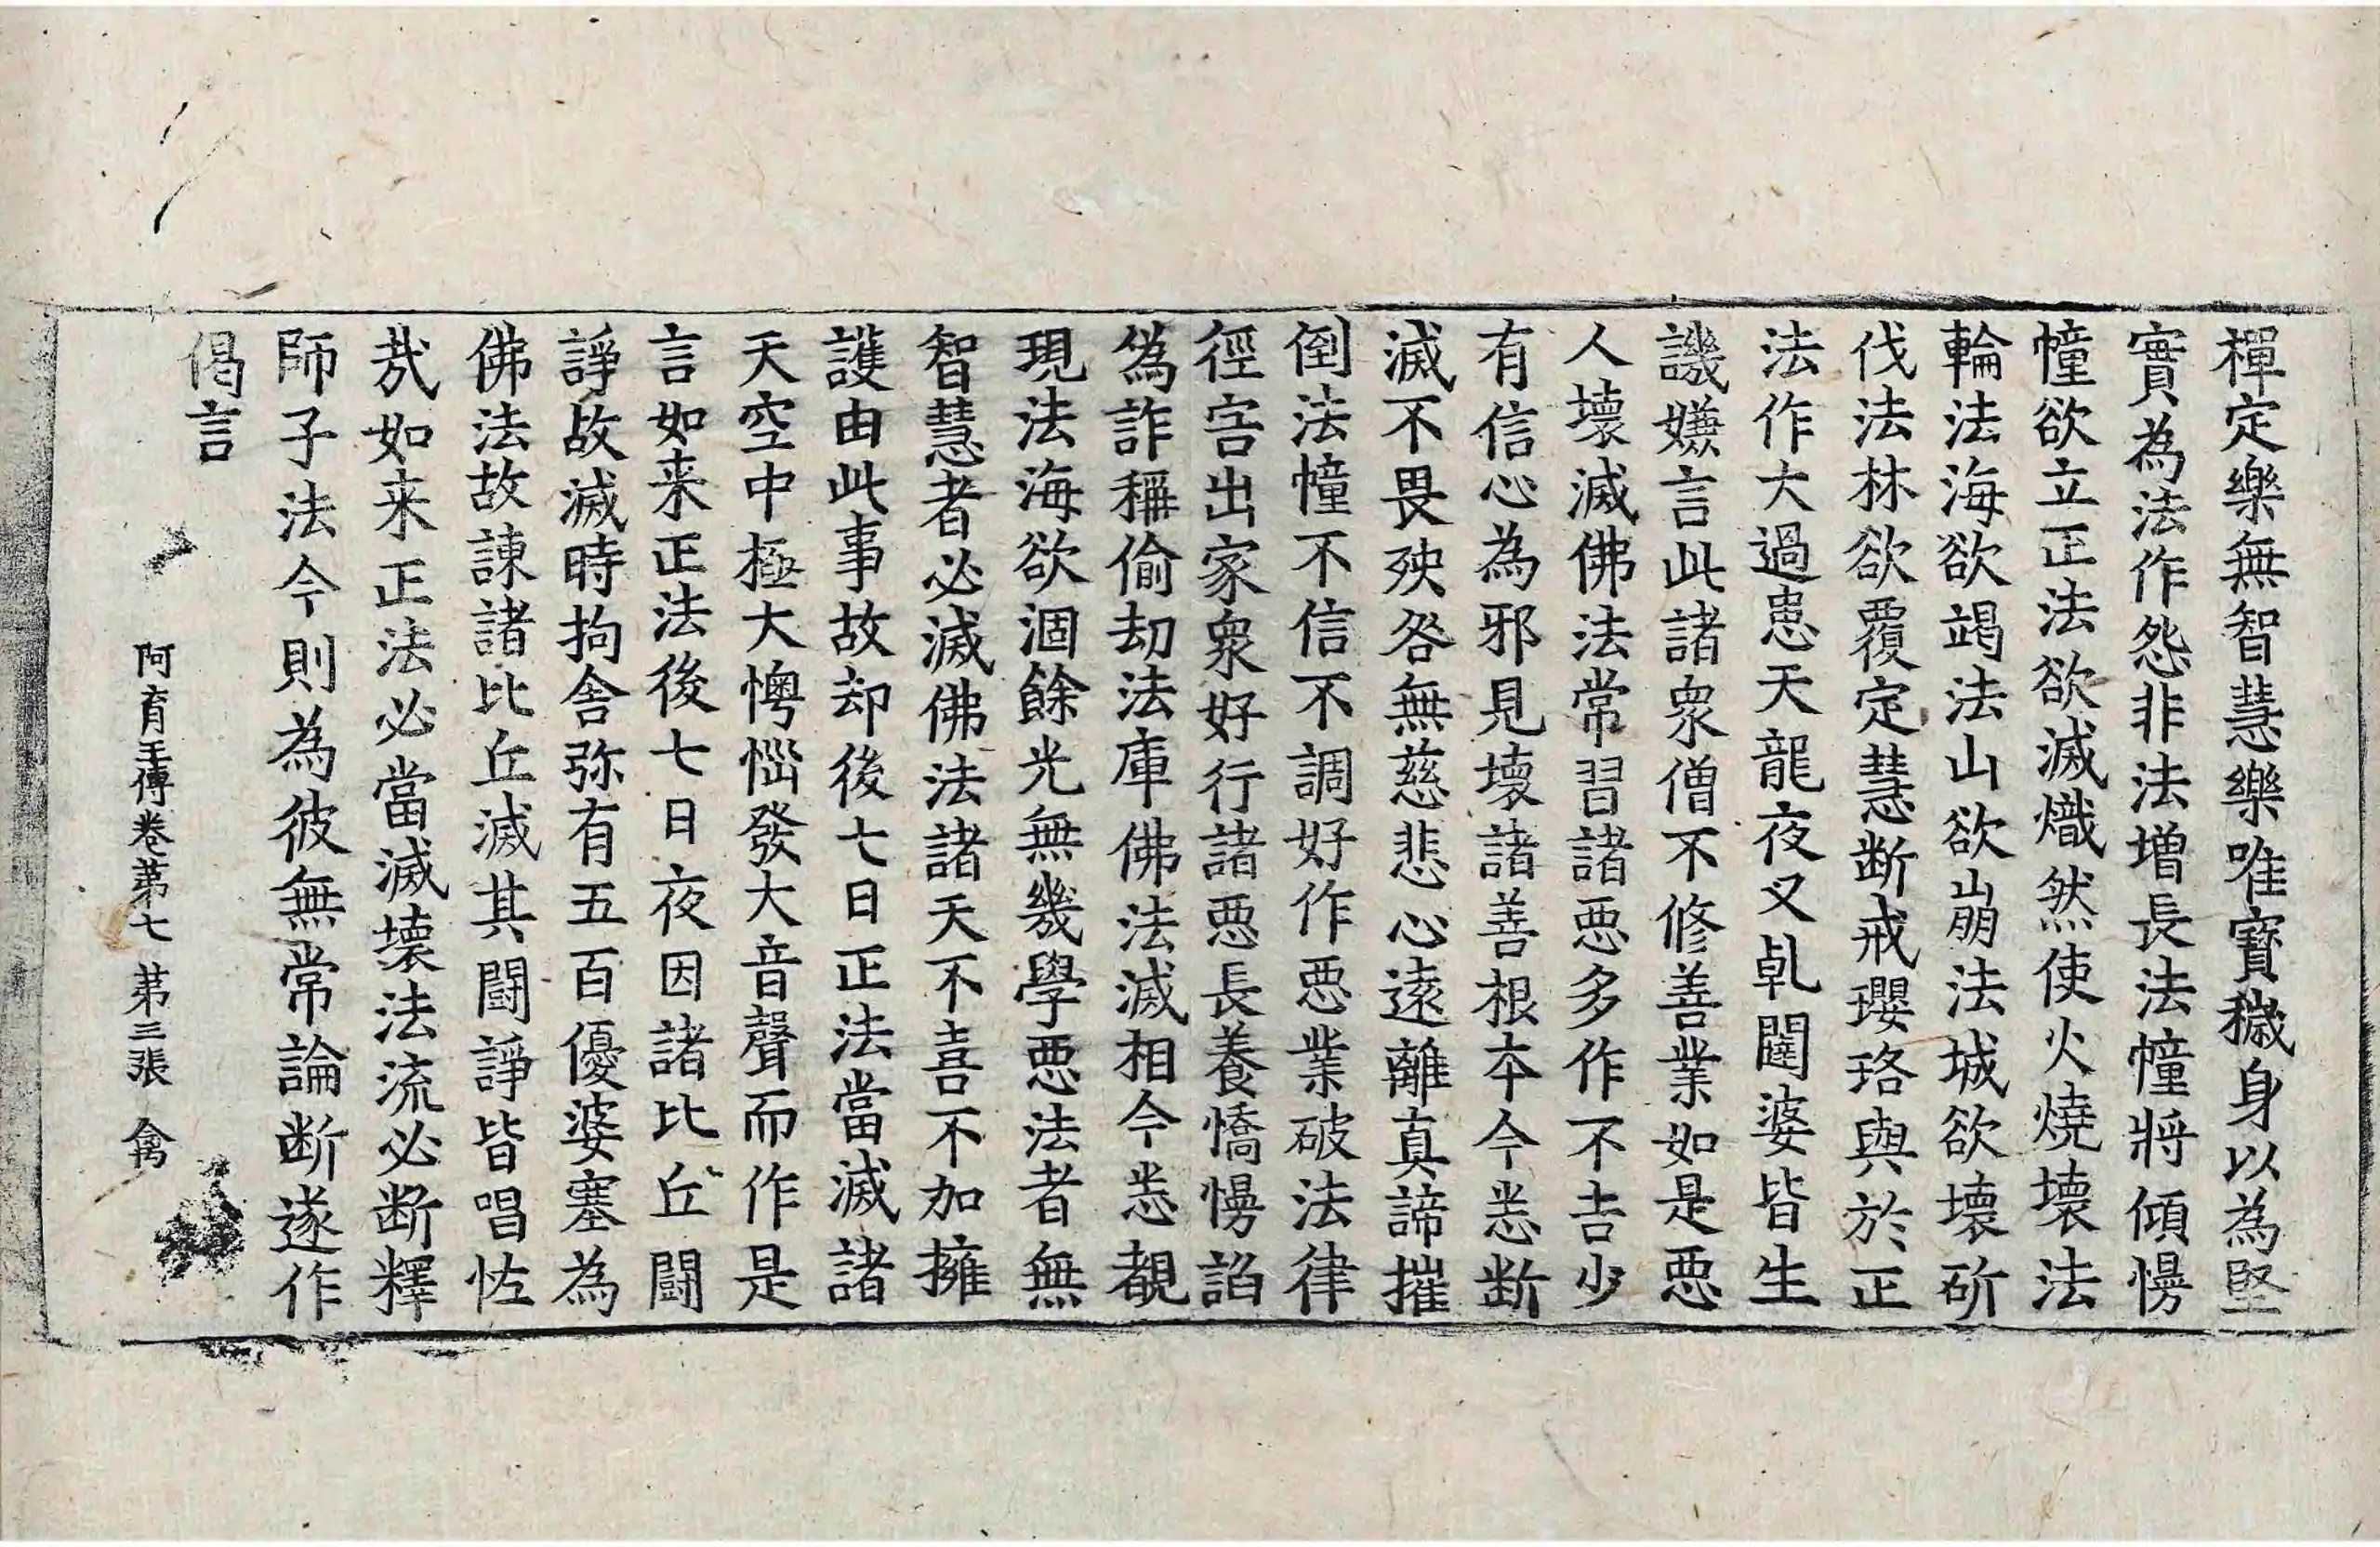 禪定樂無智慧樂唯寶穢身以為堅
實為法作怨非法增長法幢將傾慢
幢欲立正法欲滅熾然使火燒壞法
輪法海欲竭法山欲崩法城欲壞斫
伐法林欲覆定慧断戒瓔珞與於正
法作大過患天龍夜叉乹闥婆皆生
譏嫌言此諸衆僧不修善業如是惡
人壞滅佛法常習諸惡多作不吉少
有信心為邪見壞諸善根本今悉断
滅不畏殃咎無慈悲心遠離真諦摧
倒法幢不信不調好作惡業破法律
徑宮出家衆好行諸惡長養憍慢諂
偽詐稱偷劫法庫佛法滅相今悉覩
現法海欲涸餘光無幾學惡法者無
智慧者必滅佛法諸天不喜不加擁
護由此事故却後七日正法當滅諸
天空中極大懊惱發大音聲而作是
言如来正法後七日夜因諸比丘闘
諍故滅時拘舍弥有五百優婆塞為
佛法故諫諸比丘滅其闘諍皆唱恠
哉如来正法必當滅壞法流必断釋
師子法今則為彼無常論断遂作
偈言
阿育王傳卷苐七 苐三張 禽